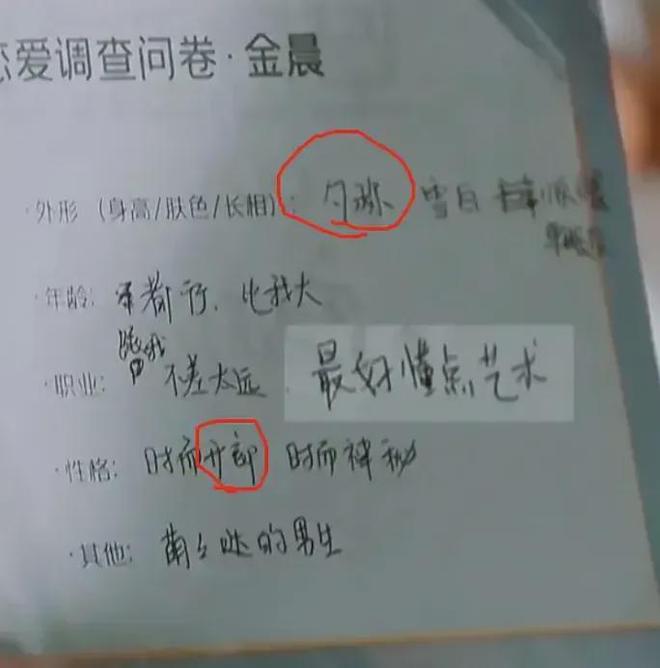 恋爱调查问卷·金晨
·外形（身高/肤色/长相）：匀称 雪白
·年龄：都行，比我大
跟我
·职业：不差太远 最好懂点艺术
·性格：时而开郎 时而神秘
·其他：萌么哒的男生